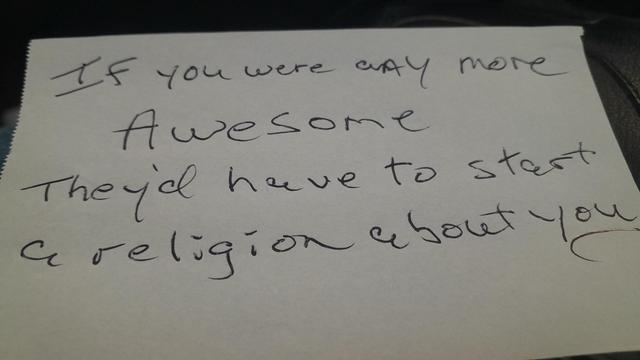 If you were any more
Awesome
They'd have to start
a religion about you